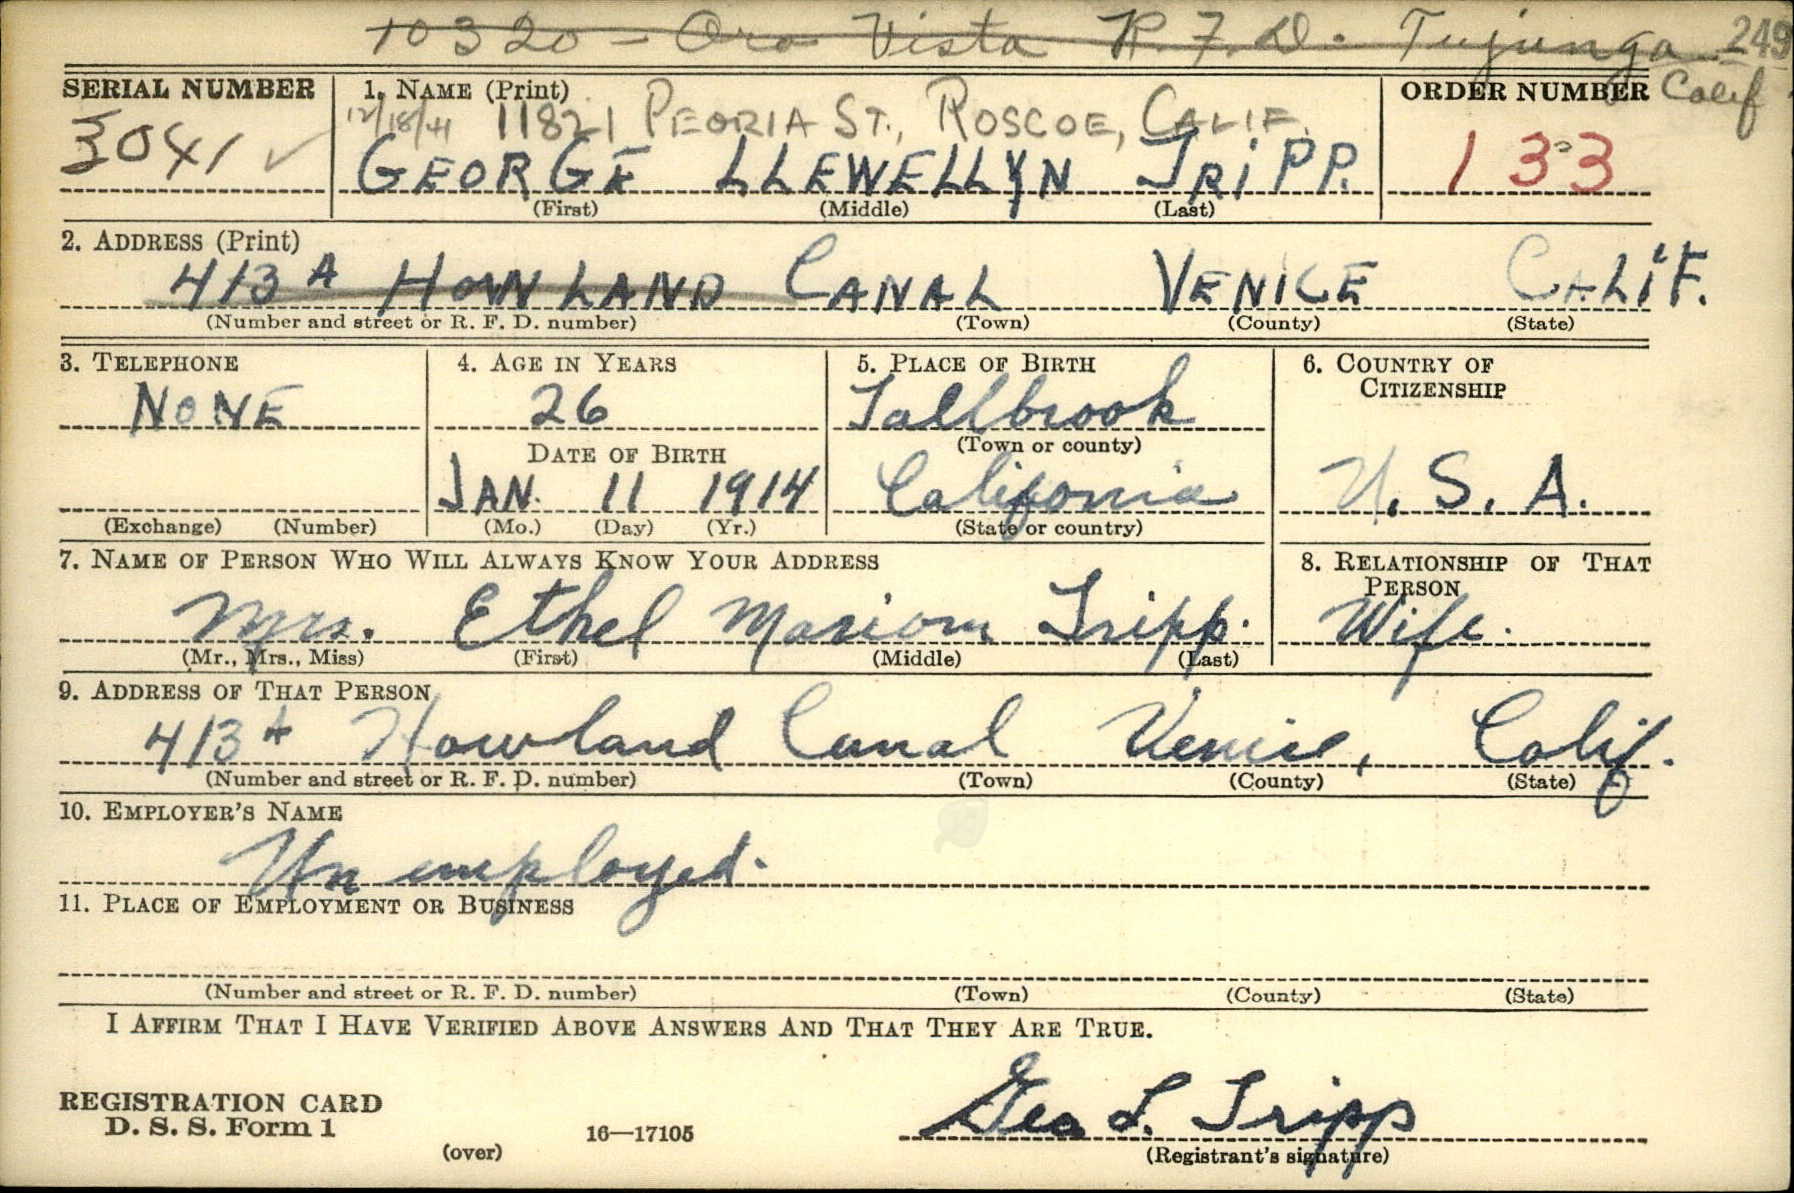 10320 - Oro Vista R.F.D. Tujunga 249
Calif
SERIAL NUMBER
3041 ✓
1. NAME (Print)
12/18/41 11821 PEORIA ST., ROSCOE, CALIF.
GEORGE LLEWELLYN TRIPP.
(First) (Middle) (Last)
ORDER NUMBER
133
2. ADDRESS (Print)
413A HOWLAND CANAL VENICE CALIF.
(Number and street or R. F. D. number) (Town) (County) (State)
3. TELEPHONE
NONE
(Exchange) (Number)
4. AGE IN YEARS
26
DATE OF BIRTH
JAN. 11 1914
(Mo.) (Day) (Yr.)
5. PLACE OF BIRTH
Fallbrook
(Town or county)
California
(State or country)
6. COUNTRY OF CITIZENSHIP
U. S. A.
7. NAME OF PERSON WHO WILL ALWAYS KNOW YOUR ADDRESS
Mrs. Ethel Marion Tripp.
(Mr., Mrs., Miss) (First) (Middle) (Last)
8. RELATIONSHIP OF THAT PERSON
Wife.
9. ADDRESS OF THAT PERSON
413A Howland Canal Venice, Calif.
(Number and street or R. F. D. number) (Town) (County) (State)
10. EMPLOYER'S NAME
Unemployed.
11. PLACE OF EMPLOYMENT OR BUSINESS
(Number and street or R. F. D. number) (Town) (County) (State)
I AFFIRM THAT I HAVE VERIFIED ABOVE ANSWERS AND THAT THEY ARE TRUE.
REGISTRATION CARD
D. S. S. Form 1
(over)
16—17105
Geo L. Tripp
(Registrant's signature)